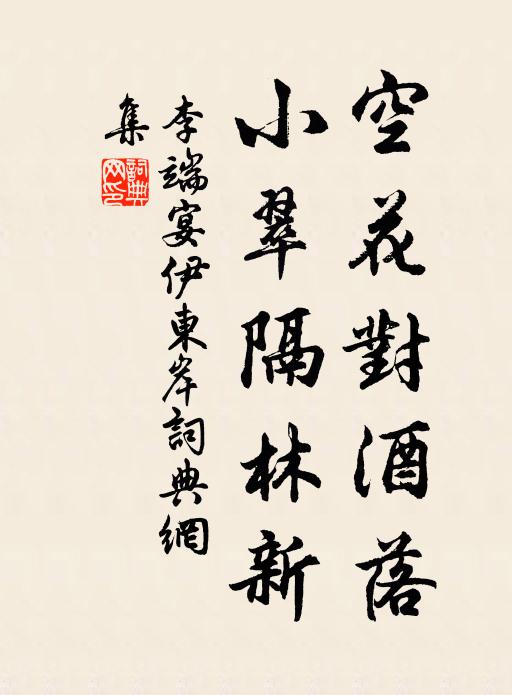 空花對酒落
小翠隔林新
李端宴伊東岸詞典網
集
詞典網印